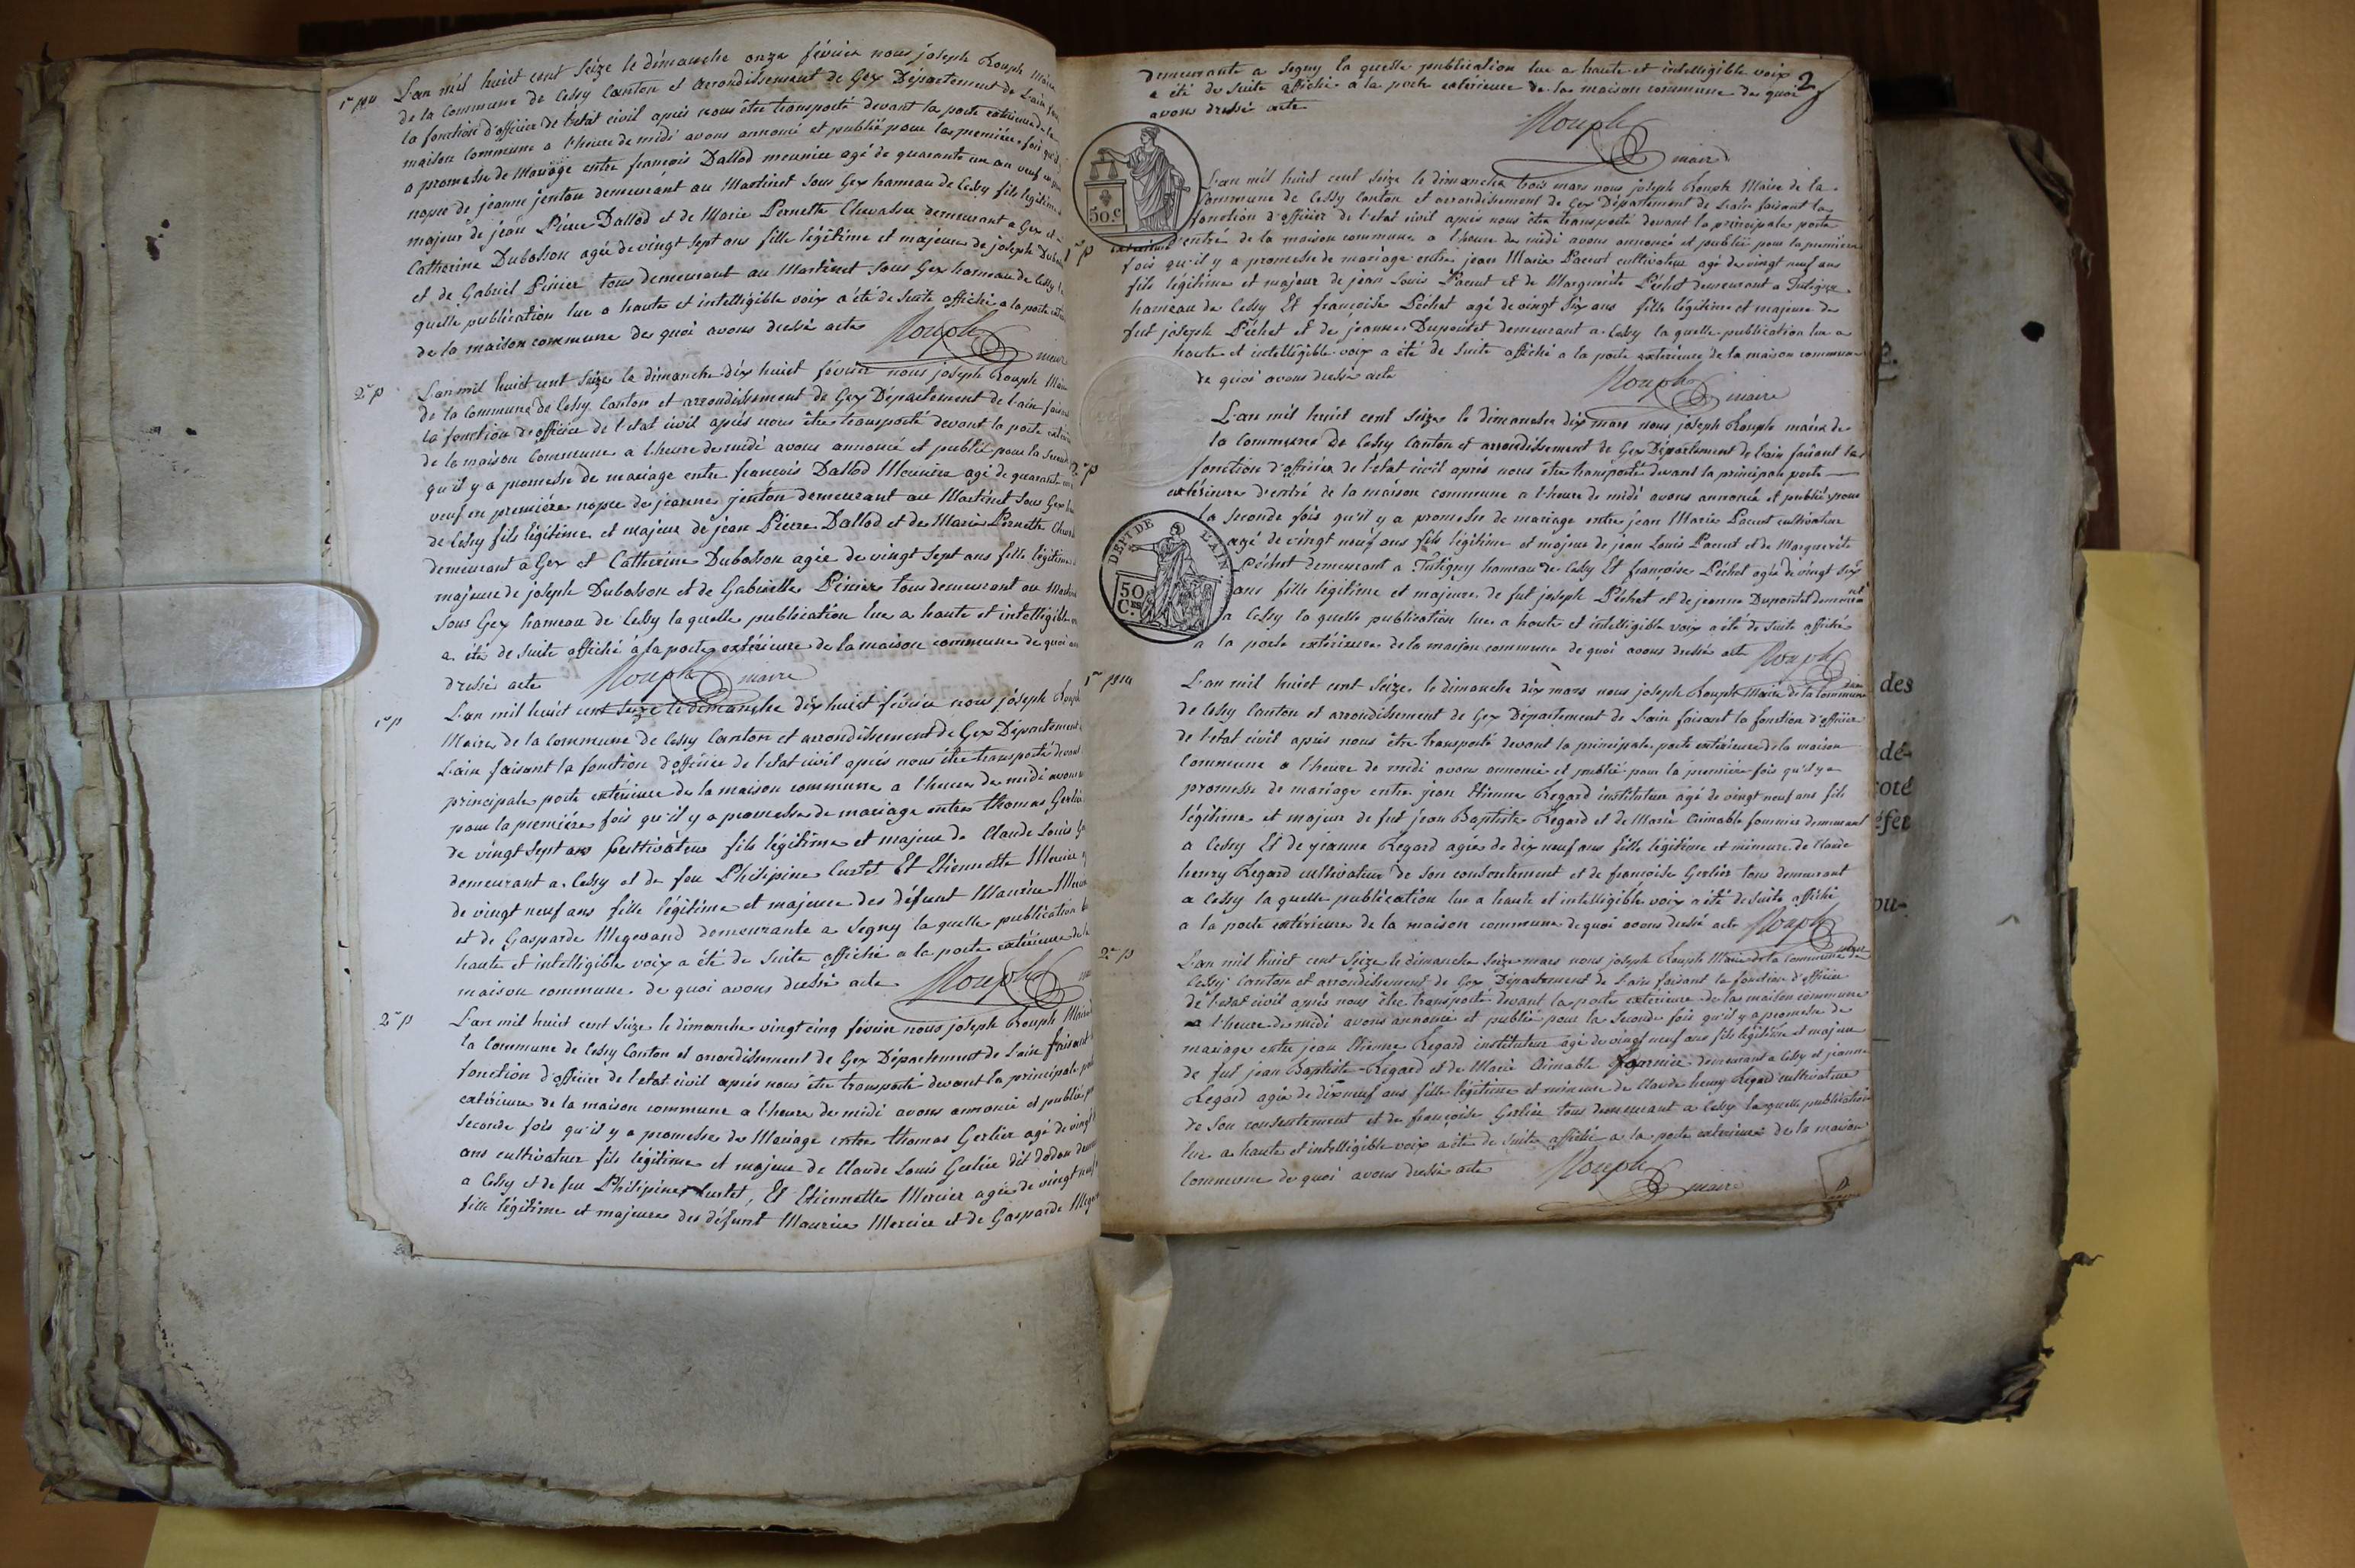 1er pu
L'an mil huict cent seize le dimanche onze février nous joseph Rouph Maire
de la Commune de Cessy Canton et arrondissement de Gex Département de l'ain
la fonction d'officier de l'etat civil après nous être transporté devant la porte extérieure de la
maison Commune a l'heure de midi avons annoncé et publié pour la première fois qu'il
a promesse de Mariage entre françois Dallod meunier agé de quarante un an veuf
nopce de jeanne jenton demeurant au Martinet sous Gex hameau de Cessy fils légitime
majeur de jean Pierre Dallod et de Marie Pernette Chevalier demeurant a Gex et
Catherine Dubosson agée de vingt sept ans fille légitime et majeure de joseph
et de Gabriel Pinier tous demeurant au Martinet sous Gex hameau de Cessy la
quelle publication lue a haute et intelligible voix a été de suite affiché a la porte
de la maison commune de quoi avons dressé acte Rouph maire
2e p
L'an mil huict cent seize le dimanche dix huict février nous joseph Rouph Maire
de la Commune de Cessy Canton et arrondissement de Gex Département de l'ain
la fonction d'officier de l'etat civil après nous être transporté devant la porte
de la maison Commune a l'heure de midi avons annoncé et publié pour la
qu'il y a promesse de mariage entre françois Dallod Meunier agé de quarante
veuf en première nopce de jeanne jenton demeurant au Martinet sous Gex
de Cessy fils légitime et majeur de jean Pierre Dallod et de Marie Pernette
demeurant à Gex et Catherine Dubosson agée de vingt sept ans fille légitime
majeure de joseph Dubosson et de Gabrielle Pinier tous demeurant au
sous Gex hameau de Cessy la quelle publication lue a haute et intelligible
a été de suite affiché à la porte extérieure de la maison commune de quoi
dressé acte Rouph maire
1er p
L'an mil huict cent seize le dimanche dix huict février nous joseph Rouph
Maire de la Commune de Cessy Canton et arrondissement de Gex Département
L'ain faisant la fonction d'officier de l'etat civil après nous être transporté
principale porte extérieure de la maison commune a l'heure de midi avons
pour la première fois qu'il y a promesse de mariage entre thomas Gerlier
de vingt sept ans Cultivateur fils légitime et majeur de Claude Louis
demeurant a Cessy et de feu Philipine Curtet Et Etiennette Mercier
de vingt neuf ans fille légitime et majeure des défunt Maurice
et de Gasparde Megevand demeurante a Segny la quelle publication
haute et intelligible voix a été de suite affiché a la porte extérieure de la
maison commune de quoi avons dressé acte Rouph
2e p
L'an mil huict cent seize le dimanche vingt cinq février nous joseph Rouph
la Commune de Cessy Canton et arrondissement de Gex Département de l'ain faisant
fonction d'officier de l'etat civil après nous être transporté devant la principale
extérieure de la maison commune a l'heure de midi avons annoncé et publié
seconde fois qu'il y a promesse de Mariage entre thomas Gerlier agé de vingt
ans cultivateur fils légitime et majeur de Claude Louis Gerlier dit dodon
a Cessy et de feu Philipine Curtet, Et Etiennette Mercier agée de vingt
fille légitime et majeure des défunt Maurice Mercier et de Gasparde
2
demeurante a Segny la quelle publication lue a haute et intelligible voix
a été de suite affiché a la porte extérieure de la maison commune de quoi
avons dressé acte
Rouph maire
50.c
1er p
L'an mil huict cent seize le dimanche trois mars nous joseph Rouph Maire de la
Commune de Cessy Canton et arrondissement de Gex Département de l'ain faisant la
fonction d'officier de l'etat civil après nous être transporté devant la principale porte
extérieure d'entré de la maison commune a l'heure de midi avons annoncé et publié pour la première
fois qu'il y a promesse de mariage entre jean Marie Pacut cultivateur agé de vingt neuf ans
fils légitime et majeur de jean Louis Pacut et de Marguerite Péchet demeurant a Tutigny
hameau de Cessy Et françoise Péchet agé de vingt six ans fille légitime et majeure de
fut joseph Péchet et de jeanne Dupontet demeurant a Cessy la quelle publication lue a
haute et intelligible voix a été de suite affiché a la porte extérieure de la maison commune
de quoi avons dressé acte Rouph maire
2e p
L'an mil huict cent seize le dimanche dix mars nous joseph Rouph maire de
la Commune de Cessy Canton et arrondissement de Gex Département de l'ain faisant la
fonction d'officier de l'etat civil après nous être transporté devant la principale porte
extérieure d'entré de la maison commune a l'heure de midi avons annoncé et publié pour
la seconde fois qu'il y a promesse de mariage entre jean Marie Pacut cultivateur
agé de vingt neuf ans fils légitime et majeur de jean Louis Pacut et de Marguerite
Péchet demeurant a Tutigny hameau de Cessy Et françoise Péchet agée de vingt six
ans fille légitime et majeure de fut joseph Péchet et de jeanne Dupontet demeurant
a Cessy la quelle publication lue a haute et intelligible voix a été de suite affiché
a la porte extérieure de la maison commune de quoi avons dressé acte Rouph
maire
DEPT DE L'AIN.
50 C.ES
1er pu
L'an mil huict cent seize le dimanche dix mars nous joseph Rouph Maire de la Commune
de Cessy Canton et arrondissement de Gex Département de l'ain faisant la fonction d'officier
de l'etat civil après nous être transporté devant la principale porte extérieure de la maison
Commune a l'heure de midi avons annoncé et publié pour la première fois qu'il y a
promesse de mariage entre jean Etienne Regard instituteur agé de vingt neuf ans fils
légitime et majeur de fut jean Baptiste Regard et de Marie Aimable fournier demeurant
a Cessy Et de jeanne Regard agée de dix neuf ans fille légitime et mineure de Claude
henry Regard cultivateur de son consentement et de françoise Gerlier tous demeurant
a Cessy la quelle publication lue a haute et intelligible voix a été de suite affiché
a la porte extérieure de la maison commune de quoi avons dressé acte Rouph
maire
2e p
L'an mil huict cent seize le dimanche seize mars nous joseph Rouph Maire de la Commune de
Cessy Canton et arrondissement de Gex Département de l'ain faisant la fonction d'officier
de l'etat civil après nous être transporté devant la porte extérieure de la maison commune
a l'heure de midi avons annoncé et publié pour la seconde fois qu'il y a promesse de
mariage entre jean Etienne Regard instituteur agé de vingt neuf ans fils légitime et majeur
de fut jean Baptiste Regard et de Marie Aimable fournier demeurant a Cessy et jeanne
Regard agée de dix neuf ans fille légitime et mineure de Claude henry Regard cultivateur
de son consentement et de françoise Gerlier tous demeurant a Cessy la quelle publication
lue a haute et intelligible voix a été de suite affiché a la porte extérieure de la maison
Commune de quoi avons dressé acte Rouph maire
des
dé-
coté
éfet
ou-